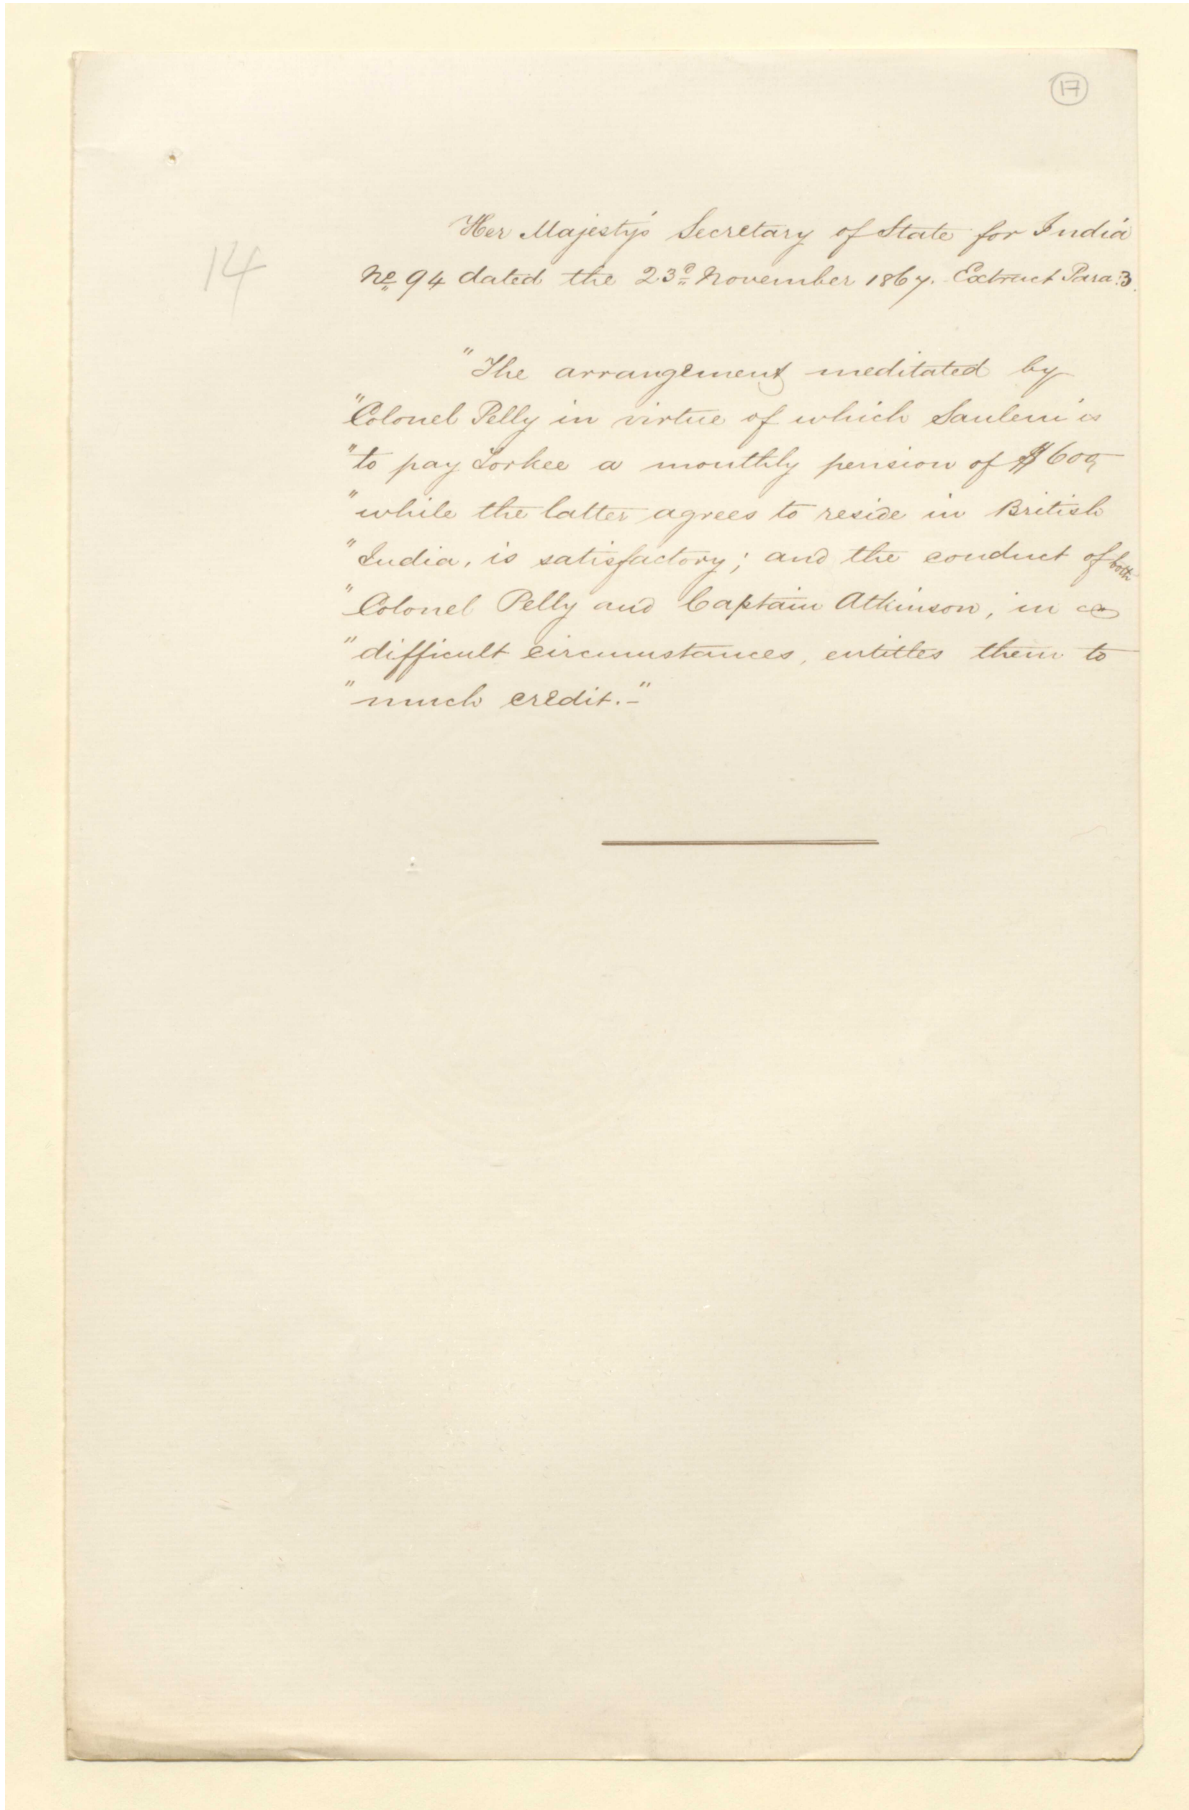 17
14
Her Majesty's Secretary of State for India
No 94 dated the 23d November 1867. Extract Para: 3.
"The arrangement meditated by
"Colonel Pelly in virtue of which Saulem is
"to pay Torkee a monthly pension of $600,
"while the latter agrees to reside in British
"India, is satisfactory; and the conduct of both
"Colonel Pelly and Captain Atkinson, in
"difficult circumstances, entitles them to
"much credit.-"